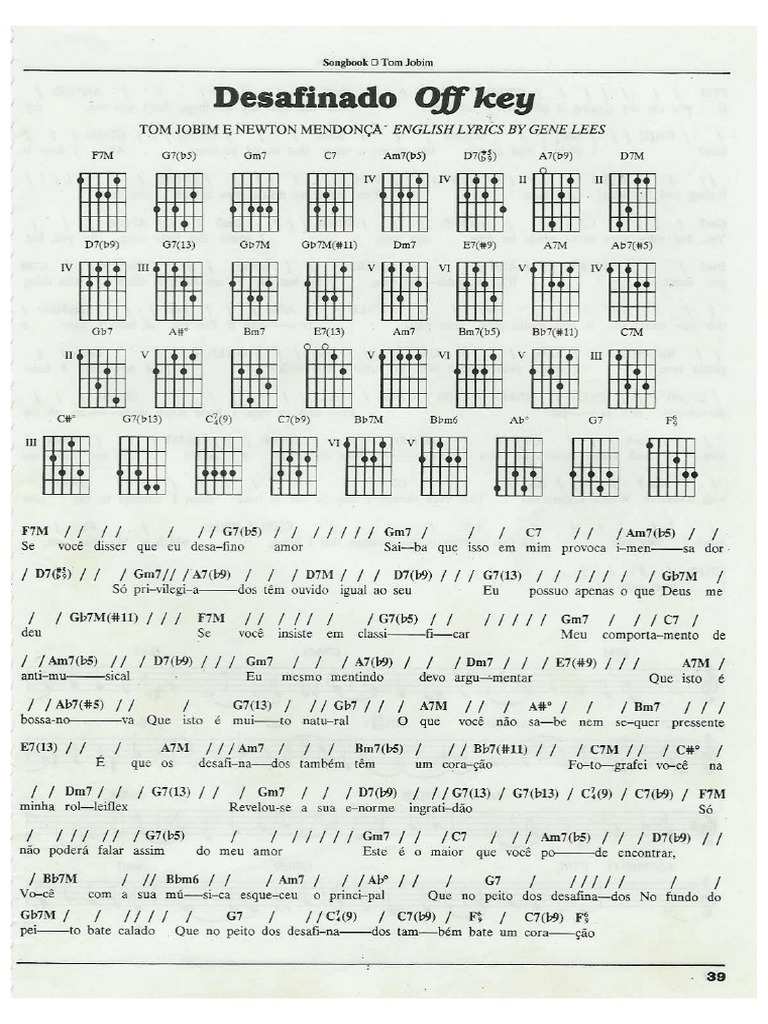 Songbook □ Tom Jobim
Desafinado Off key
TOM JOBIM E NEWTON MENDONÇA ENGLISH LYRICS BY GENE LEES
F7M G7(b5) Gm7 C7 Am7(b5) D7(#5 b9) A7(b9) D7M
IV IV II II
D7(b9) G7(13) Gb7M Gb7M(#11) Dm7 E7(#9) A7M Ab7(#5)
IV III V VI V IV
Gb7 A#° Bm7 E7(13) Am7 Bm7(b5) Bb7(#11) C7M
II V V V III
C#° G7(b13) C7 4(9) C7(b9) Bb7M Bbm6 Ab° G7 F6 9
III VI V
F7M / / / / / / / G7(b5) / / / / / / / Gm7 / / / C7 / / / Am7(b5) / /
Se você disser que eu desa–fino amor Sai–ba que isso em mim provoca i–men——sa dor
/ D7(#5 b9) / / / Gm7 / / / A7(b9) / / / D7M / / / D7(b9) / / / G7(13) / / / / / / / Gb7M /
Só pri–vilegi–a——dos têm ouvido igual ao seu Eu possuo apenas o que Deus me
/ / Gb7M(#11) / / / F7M / / / / / / / G7(b5) / / / / / / / Gm7 / / / C7 /
deu Se você insiste em classi——fi–car Meu comporta–mento de
/ / Am7(b5) / / / D7(b9) / / / Gm7 / / / A7(b9) / / / Dm7 / / / E7(#9) / / / A7M /
anti–mu——sical Eu mesmo mentindo devo argu—mentar Que isto é
/ / Ab7(#5) / / / G7(13) / / / Gb7 / / / A7M / / / A#° / / / Bm7 / / /
bossa–no——va Que isto é mui—to natu–ral O que você não sa–be nem se–quer pressente
E7(13) / / / A7M / / / Am7 / / / Bm7(b5) / / / Bb7(#11) / / / C7M / / / C#° /
É que os desafi–na—dos também têm um cora–ção Fo–to—grafei vo–cê na
/ / Dm7 / / / G7(13) / / / Gm7 / / / D7(b9) / / / G7(13) / G7(b13) / C7 4(9) / C7(b9) / F7M
minha rol—leiflex Revelou–se a sua e–norme ingrati–dão Só
/ / / / / / / G7(b5) / / / / / / / Gm7 / / / C7 / / / Am7(b5) / / / D7(b9) / /
não poderá falar assim do meu amor Este é o maior que você po——de encontrar,
/ Bb7M / / / Bbm6 / / / Am7 / / / Ab° / / / G7 / / / / / / /
Vo–cê com a sua mú—si–ca esque–ceu o princi–pal Que no peito dos desafina—dos No fundo do
Gb7M / / / / / / / G7 / / / C7 4(9) / C7(b9) / F6 9 / C7(b9) F6 9
pei—to bate calado Que no peito dos desafi–na——dos tam—bém bate um cora—ção
39